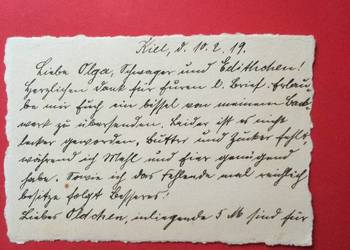 Kiel, d. 10.2.19.
Liebe Olga, Schwager und Edithchen!
Herzlichen Dank für Euren l. Brief. Erlau-
be mir Euch ein bissel von meinem Back-
werk zu übersenden. Leider ist es nicht
lecker geworden, Butter und Zucker fehlt,
während ich Mehl und Eier genügend
habe. Sowie ich das Fehlende mal reichlich
besitze folgt Besseres!
Liebes Oldchen, inliegende 5 M sind für